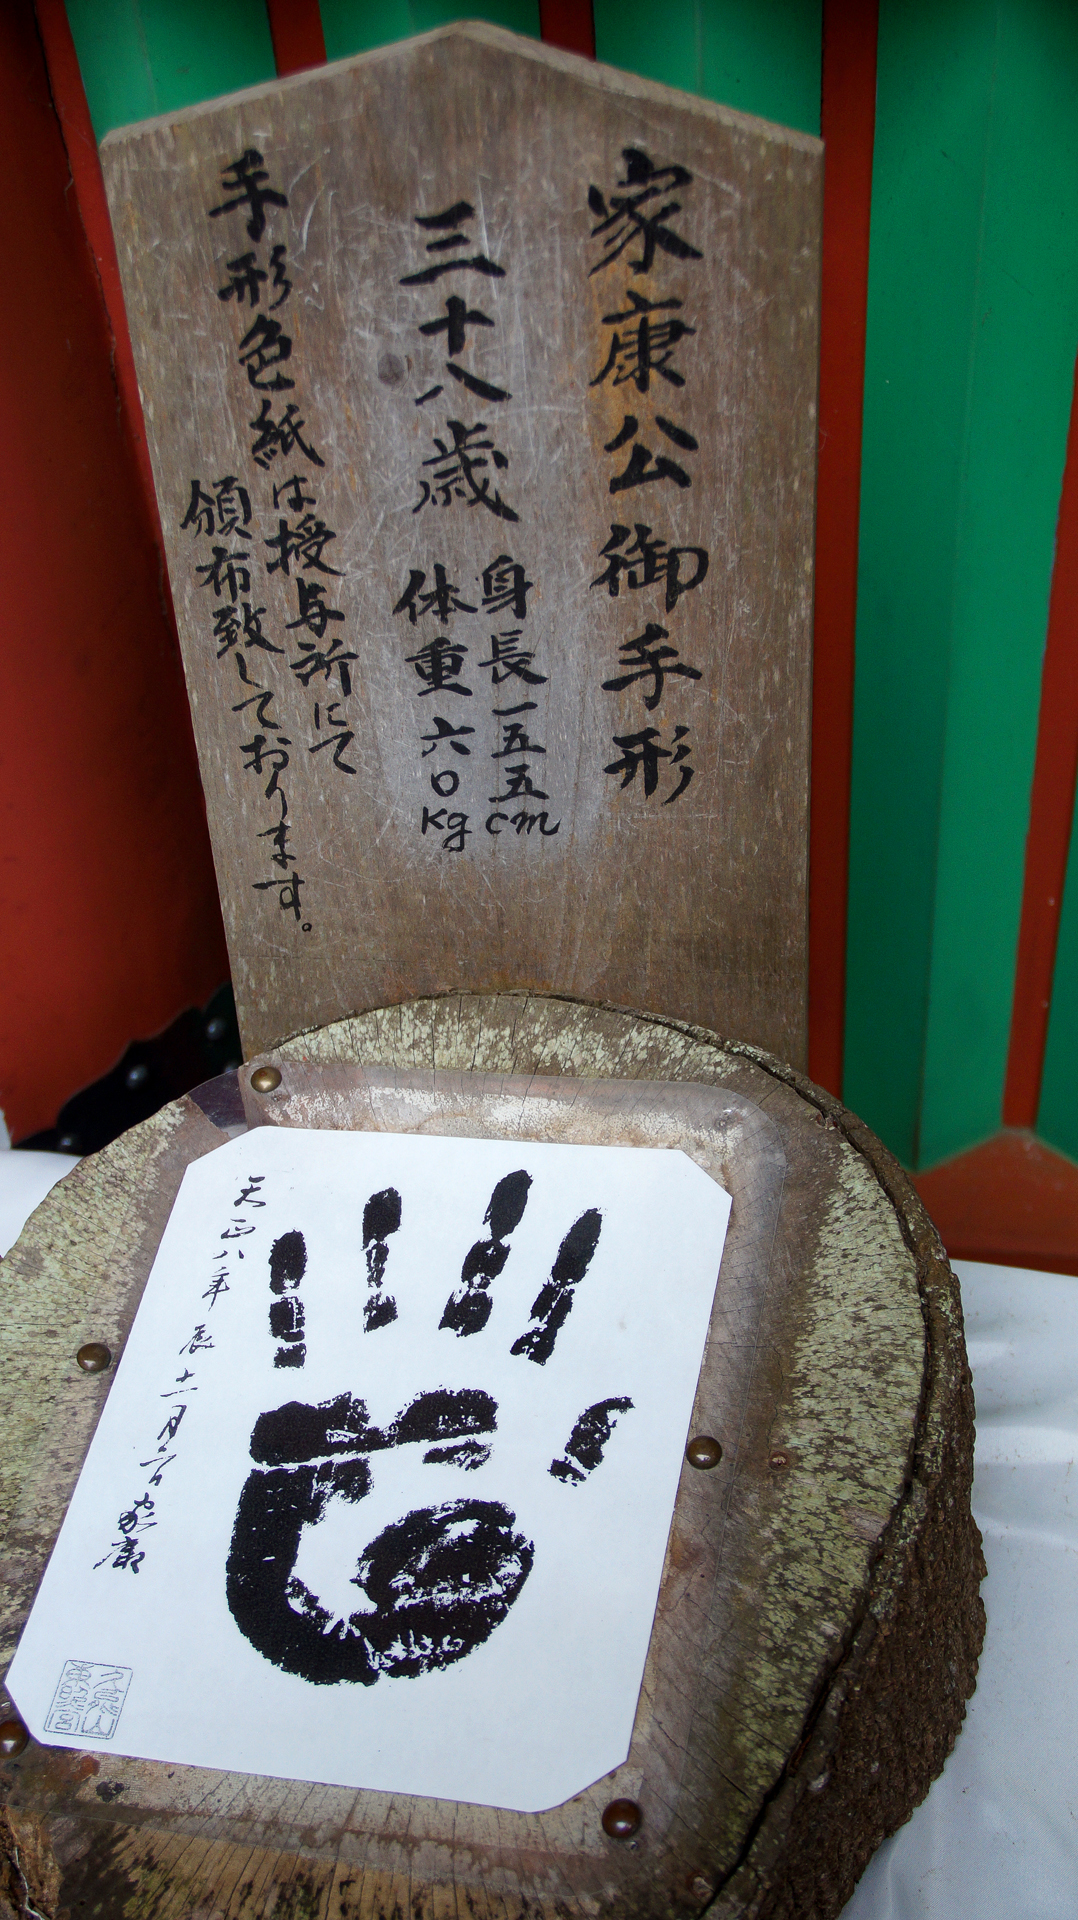 家康公御手形
三十八歳
身長一五五cm
体重六〇kg
手形色紙は授与所にて
頒布致しております。
天正八年辰十一月六日家康
久能山
東照宮